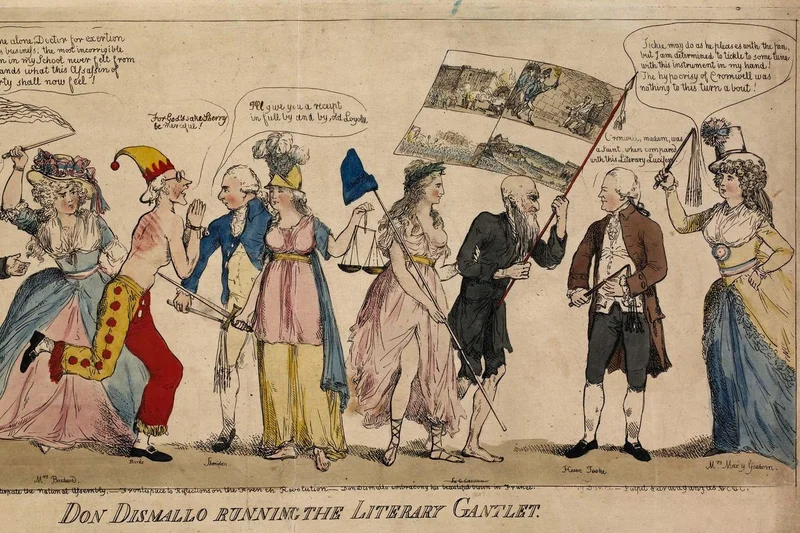 me alone Doctor for exertion
business; the most incorrigible
n in my School never felt from
ands what this Assassin of
rty shall now feel!
For God's sake Sherry
be merciful!
I'll give you a receipt
in full by and by, old Loyola
Cromwell, madam, was
a Saint, when compared
with this Literary Lucifer
Tickle may do as he pleases with the pen,
but I am determined to tickle to some tune
with this instrument in my hand!
The hypocrisy of Cromwell was
nothing to this turn about!
Mrs Barbaud.
Burke
Sheridan
Horn Tooke
Mrs Macy Graham.
the National Assembly. Frontispiece to Reflections on the French Revolution Don Dismallo embracing his beautiful vision in France
DON DISMALLO RUNNING THE LITERARY GANTLET.